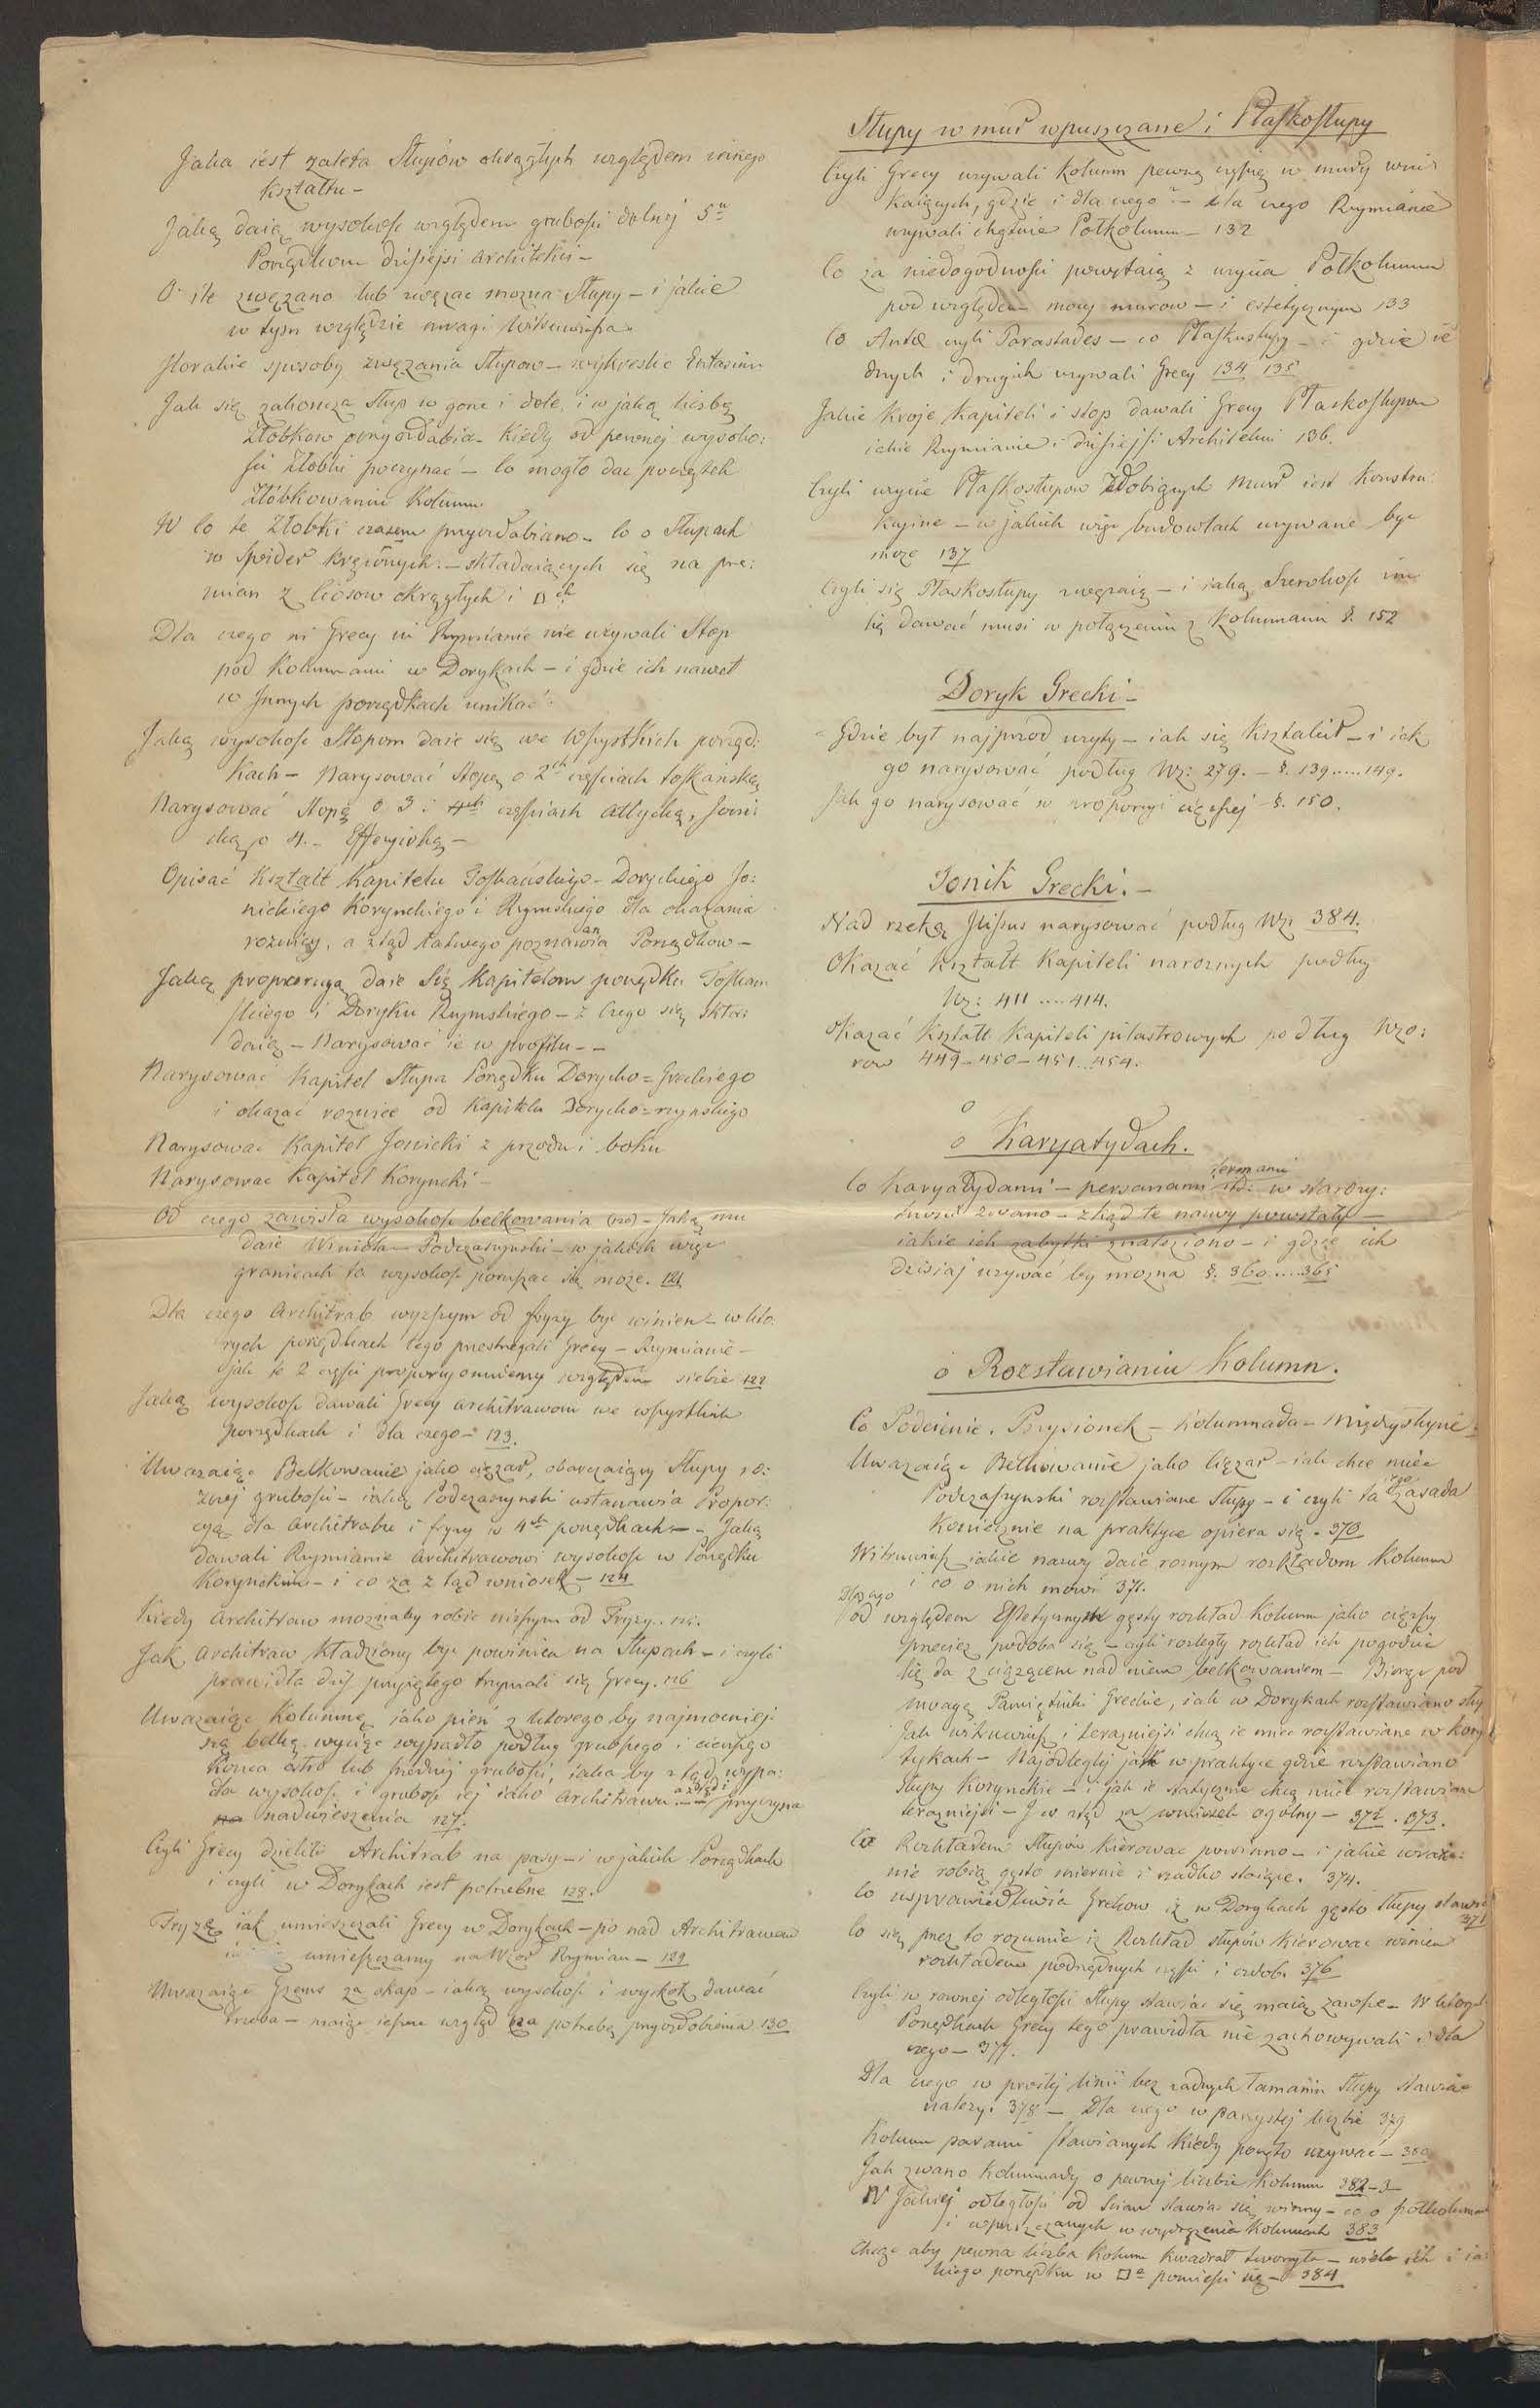 Jaka iest zaleta Słupów okrągłych względem innego
kształtu –
Jaką daią wysokość względem grubości dolnej 5u
Porządkom dzisiejsi Architekci –
O ile zwęzano lub zwęzac mozna Słupy – i jakie
w tym względzie uwagi Witruwiusza
Jlorakie sposoby zwęzania Słupow – wykreslic Entasim
Jak się zakoncza słup w gorze i dole, i w jaką liczbę
Złobkow przyozdabia – kiedy od pewnej wysoko:
ści Złobki poczynać – Co mogło dac początek
Złóbkowaniu Kolumn
W co te Złobki czasem przyozdabiano – co o Słupach
w Spider kręconych – składaiących się na prze:
mian z Ciosow okrągłych i □ch
Dla czego ni Grecy ni Rzymianie nie uzywali Stop
pod Kolumnami w Dorykach – i gdzie ich nawet
w Jnnych porządkach unikać
Jaką wysokość Stopom daie się we Wszystkich porząd:
kach – Narysować Stopę o 2ch częściach toskańską
Narysować Stopę o 3 i 4ch częściach attycką, Joni:
cką, o 4. – Effezyiską –
Opisać Kształt Kapitelu Toskańskiego – Doryckiego Jo:
nickiego Korynckiego i Rzymskiego dla okazania
roznicy, a ztąd łatwego poznawania Porządkow –
Jaką proporcyą daie Się Kapitelom porządku Toskań
skiego i Doryku Rzymskiego – z Czego się skła:
daią – Narysować ie w profilu – –
Narysować Kapitel Słupa Porządku Dorycko=Greckiego
i okazać roznice od Kapitelu Dorycko=rzymskiego
Narysować Kapitel Jonicki z przodu i boku
Narysować Kapitel Koryncki –
Od czego zawisła wysokość belkowania (120) – Jaką mu
daie Winiola – Podczaszynski – w jakich więc
granicach ta wysokość poruszac się może. 121
Dla czego Architrab wyzszym od fryzy byc winien – w któ:
rych porządkach tego przestrzegali Grecy – Rzymianie –
jak te 2 części proporcyonuiemy względem siebie 122
Jaką wysokość dawali Grecy Architrawom we wszystkich
porządkach i dla czego – 123.
Uwazaiąc Belkowanie jako cięzar, obarczaiący Słupy ro:
znej grubości – iaką Podczaszynski ustanawia Propor:
cyą dla Architrabu i fryzy w 4ch porządkach – – Jaką
dawali Rzymianie Architrawowi wysokość w Porządku
Korynckim – i co za z tąd wniosek – 124
Kiedy Architraw moznaby robic nizszym od Fryzy. 125.
Jak Architraw kładziony byc powinien na Słupach – i czyli
prawidła dziś przyiętego trzymali się Grecy. 126
Uwazaiąc Kolumnę jako pień z którego by najmocniej:
szą belkę wyciąc wypadło podług grubszego i cieńszego
Konca albo lub średniej grubości, iaka by z tąd wypa:
dła wysokość i grubość iej iako Architrawu – a ztąd i przyczyna
nadwieszenia 127.
Czyli Grecy dzielili Architrab na pasy – i w jakich Porządkach
i czyli w Dorykach iest potrzebne 128.
Fryzę iak umieszczali Grecy w Dorykach – po nad Architrawem
umieszczamy na Wzor Rzymian – 129
Uwazaiąc Gzems za okap – iaką wysokość i wyskok dawać
trzeba – maiąc ieszcze wzgląd na potrzebę przyozdobienia 130
Słupy w mur wpuszczane i Płaskosłupy
Czyli Grecy uzywali Kolumn pewną częścią w mury wni:
kaiących, gdzie i dla czego – dla czego Rzymianie
uzywali chętnie Połkolumn – 132
Co za niedogodności powstaią z uzycia Połkolumn
pod względem mocy murow – i estetycznym 133
Co Antæ czyli Parastades – co Płaskosłupy – i gdzie ie
dnych i drugich uzywali Grecy 134 135
Jakie kroje kapiteli i stop dawali Grecy Płaskosłupom
iakie Rzymianie i dzisiejsi Architekci 136.
Czyli uzycie Płaskosłupow Zdobiących Mur iest Konstru:
kcyine – w jakich więc budowlach uzywane byc
moze 137
Czyli się Płaskosłupy zwęzaią – i iaką Szerokość im
się dawać musi w połączeniu z Kolumnami §. 152
Doryk Grecki –
Gdzie był najprzod uzyty – iak się kształcił – i iak
go narysować podług Wz: 279. – §. 139.....149.
Jak go narysować w proporcyi cięzszej – §. 150.
Jonik Grecki. –
Nad rzeką Jlissus narysować podług Wz. 384.
Okazać kształt Kapiteli naroznych podług
Wz: 411 .... 414.
Okazać kształt Kapiteli pilastrowych podług Wzo:
row 449 – 450 – 451...454.
o
o Karyatydach.
Co Karyatydami – persanami termami itd: w starozy:
tności zwano – zkąd te nazwy powstały –
iakie ich zabytki znaleziono – i gdzie ich
dzisiaj uzywać by mozna §. 360....365
o Rozstawianiu Kolumn.
Co Podcienie, Przysionek – Kolumnada – Międzysłupie.
Uwazaiąc Belkowanie jako Cięzar – iak chce miec
Podczaszynski rozstawiane Słupy – i czyli ta iego zasada
Koniecznie na praktyce opiera się – 370
Witruwiusz iakie nazwy daie roznym rozkładom Kolumn
i co o nich mowi 371.
Dla czego
pod względem Estetycznym gęsty rozkład Kolumn jako cięzszy
przeciez podoba się – czyli rozległy rozkład ich pogodzic
się da z ciążącem nad niem belkowaniem – Biorąc pod
uwagę Pamiętniki Greckie, iak w Dorykach rozstawiano słu
Jak witruwiusz i terazniejsi chcą ie miec rozstawiane w Kory
tykach – Najodleglej jak w praktyce gdzie rozstawiano
Słupy Korynckie – i jak ie statycznie chcą miec rozstawiane
terazniejsi – J co ztąd za wniosek ogólny – 372. 373.
Co Rozkładem Słupów kierować powinno – i jakie wraże:
nie robią gęsto miernie i rzadko stoiące. 374.
Co usprawiedliwia Grekow iz w Dorykach gęsto słupy stawia
375
Co się przez to rozumie iz Rozkład słupów Kierowac winien
rozkładem podrzędnych części i ozdob. 376
Czyli w rownej odległości Słupy stawiac się maią zawsze – W ktorych
Porządkach Grecy tego prawidła nie zachowywali i dla
czego – 377.
Dla czego w prostej linii bez zadnych łamanin Słupy stawiac
nalezy. 378 – Dla czego w parzystej liczbie 379
Kolumn parami stawianych kiedy poczęto uzywać – 380
Jak zwano Kolumnady o pewnej liczbie Kolumn 382 – 3 –
W Jakiej odległości od Scian stawiac się winny – co o połkolumnach
i wpuszczanych w wydrązenia Kolumnach 383
Chcąc aby pewna liczba Kolumn kwadrat tworzyła – wiele ich i ia:
kiego porządku w □e pomieści się – 384